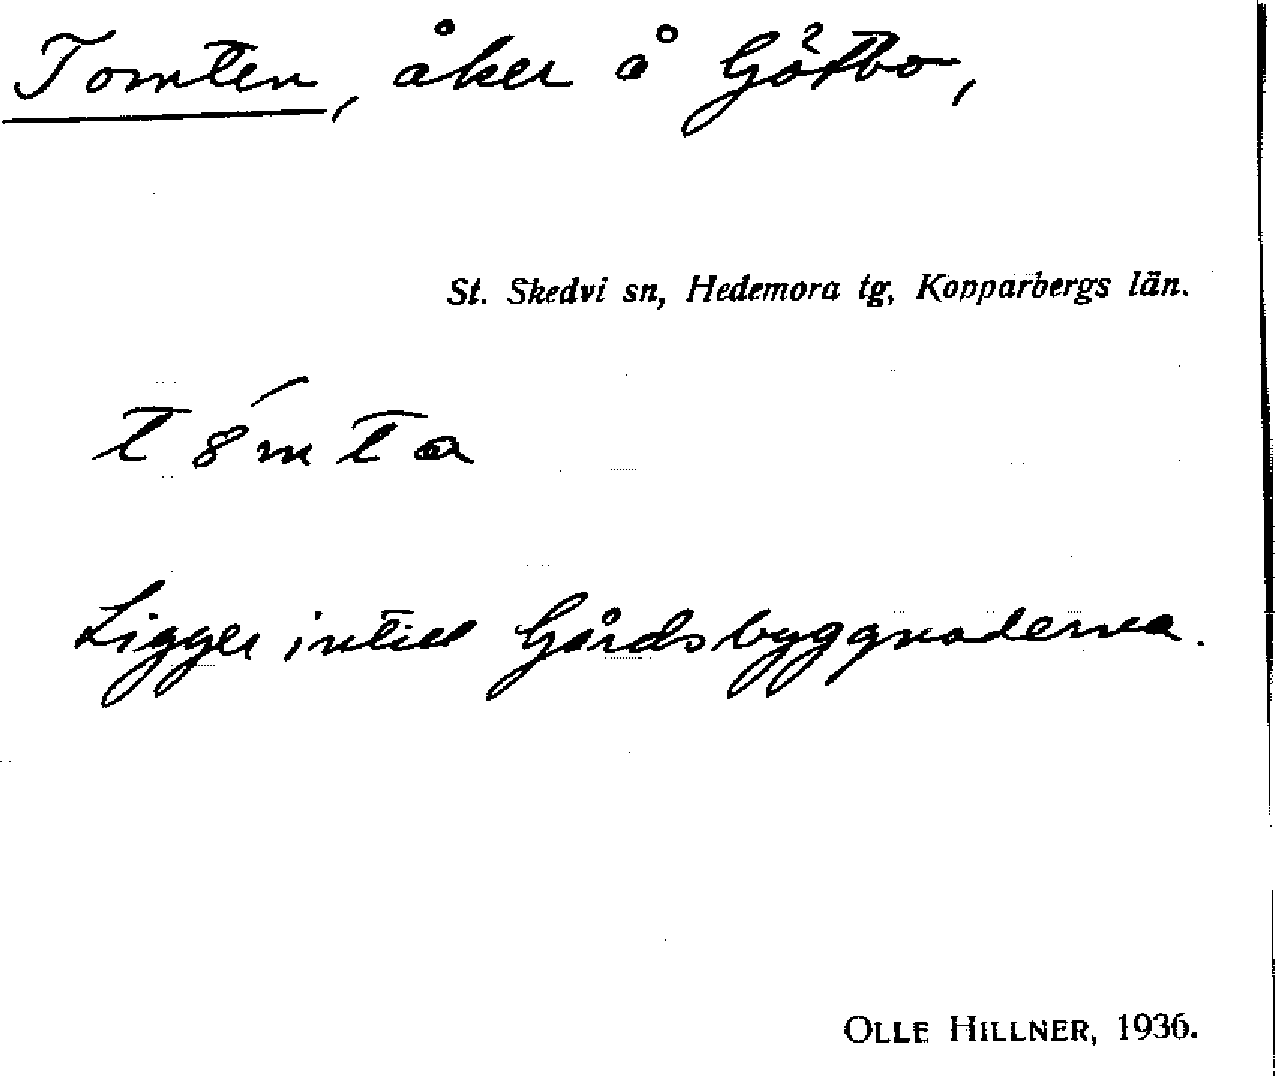 Tomten, åker å Götbo,
St. Skedvi sn, Hedemora tg, Kopparbergs län.
t 8́ m t a
Ligger intill Gårdsbyggnaderna.
OLLE HILLNER, 1936.